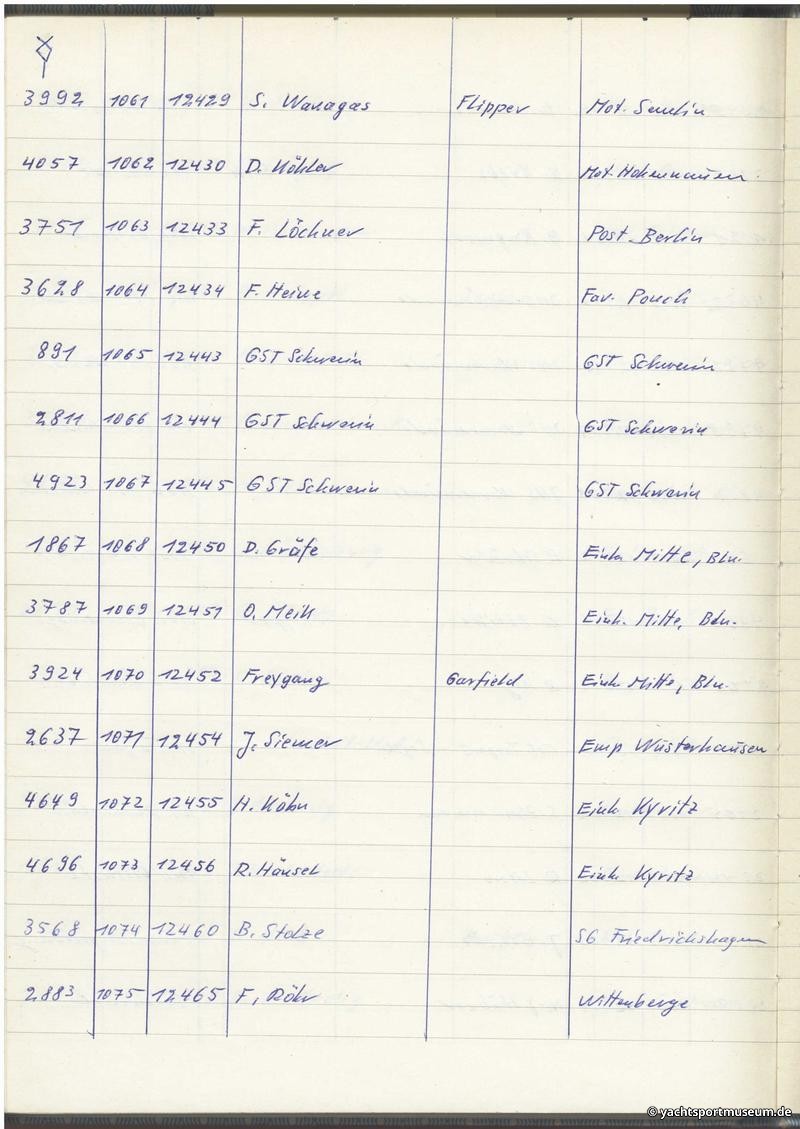 3992 1061 12429 S. Wanagas Flipper Mot. Senftin
4057 1062 12430 D. Köhler Mot. Hohennauen
3751 1063 12433 F. Löchner Post Berlin
3628 1064 12434 F. Heine Fav. Pouch
891 1065 12443 GST Schwerin GST Schwerin
2811 1066 12444 GST Schwerin GST Schwerin
4923 1067 12445 GST Schwerin GST Schwerin
1867 1068 12450 D. Gräfe Einh. Mitte, Bln.
3787 1069 12451 O. Meih Einh. Mitte, Bln.
3924 1070 12452 Freygang Garfield Einh. Mitte, Bln.
2637 1071 12454 J. Siemer Emp Wusterhausen
4649 1072 12455 H. Köhn Einh. Kyritz
4696 1073 12456 R. Hänsel Einh. Kyritz
3568 1074 12460 B. Stolze SG Friedrichshagen
2883 1075 12465 F. Röhr Wittenberge
© yachtsportmuseum.de